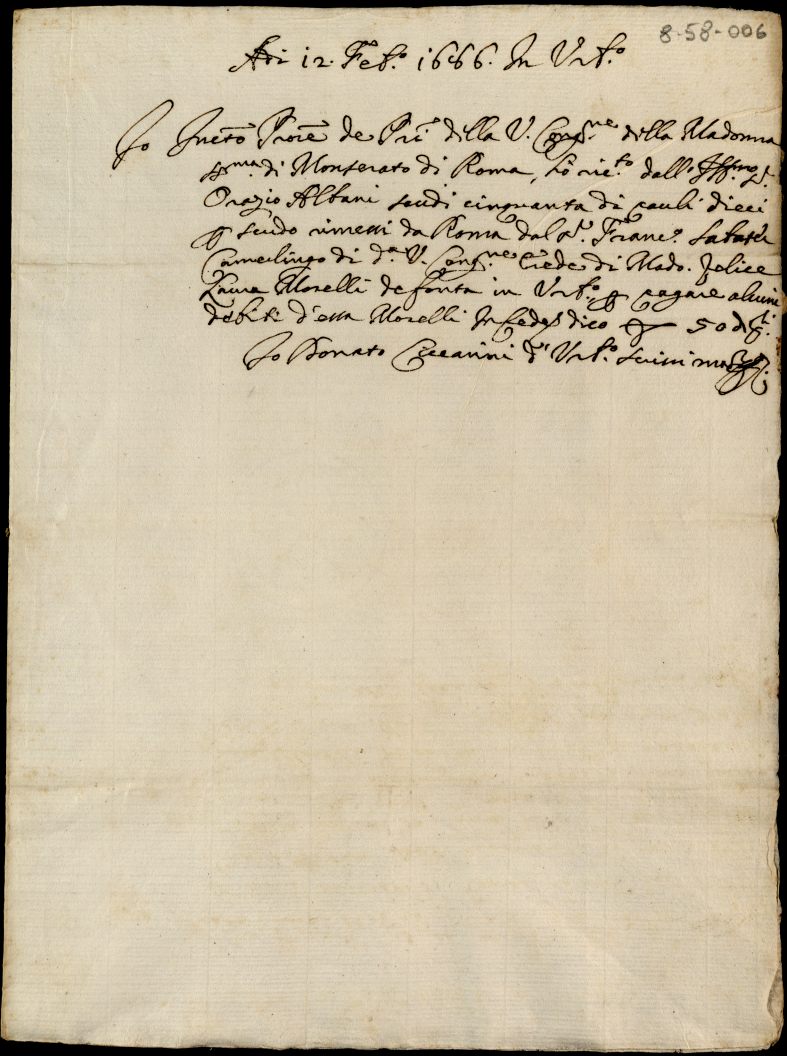 8-58-006
Adi 12. Feb.º 1666. In Urb.º
Io Infrõ Prore de Pri della V. Cong.ne della Madonna
SS.ma di Monserato di Roma, hò ric.to dall'Ill.mo S.r
Orazio Albani scudi cinquanta di pauli dieci
p scudo rimessi da Roma dal S.r Franc.º
Camerlingo di d.a V. Cong.ne Erede di Mad.a Felice
Laura Morelli defonta in Urb.º p pagare alcuni
debiti d'essa Morelli In fede dico 50 di
Io Donato Ceccarini d'Urb.º scrissi